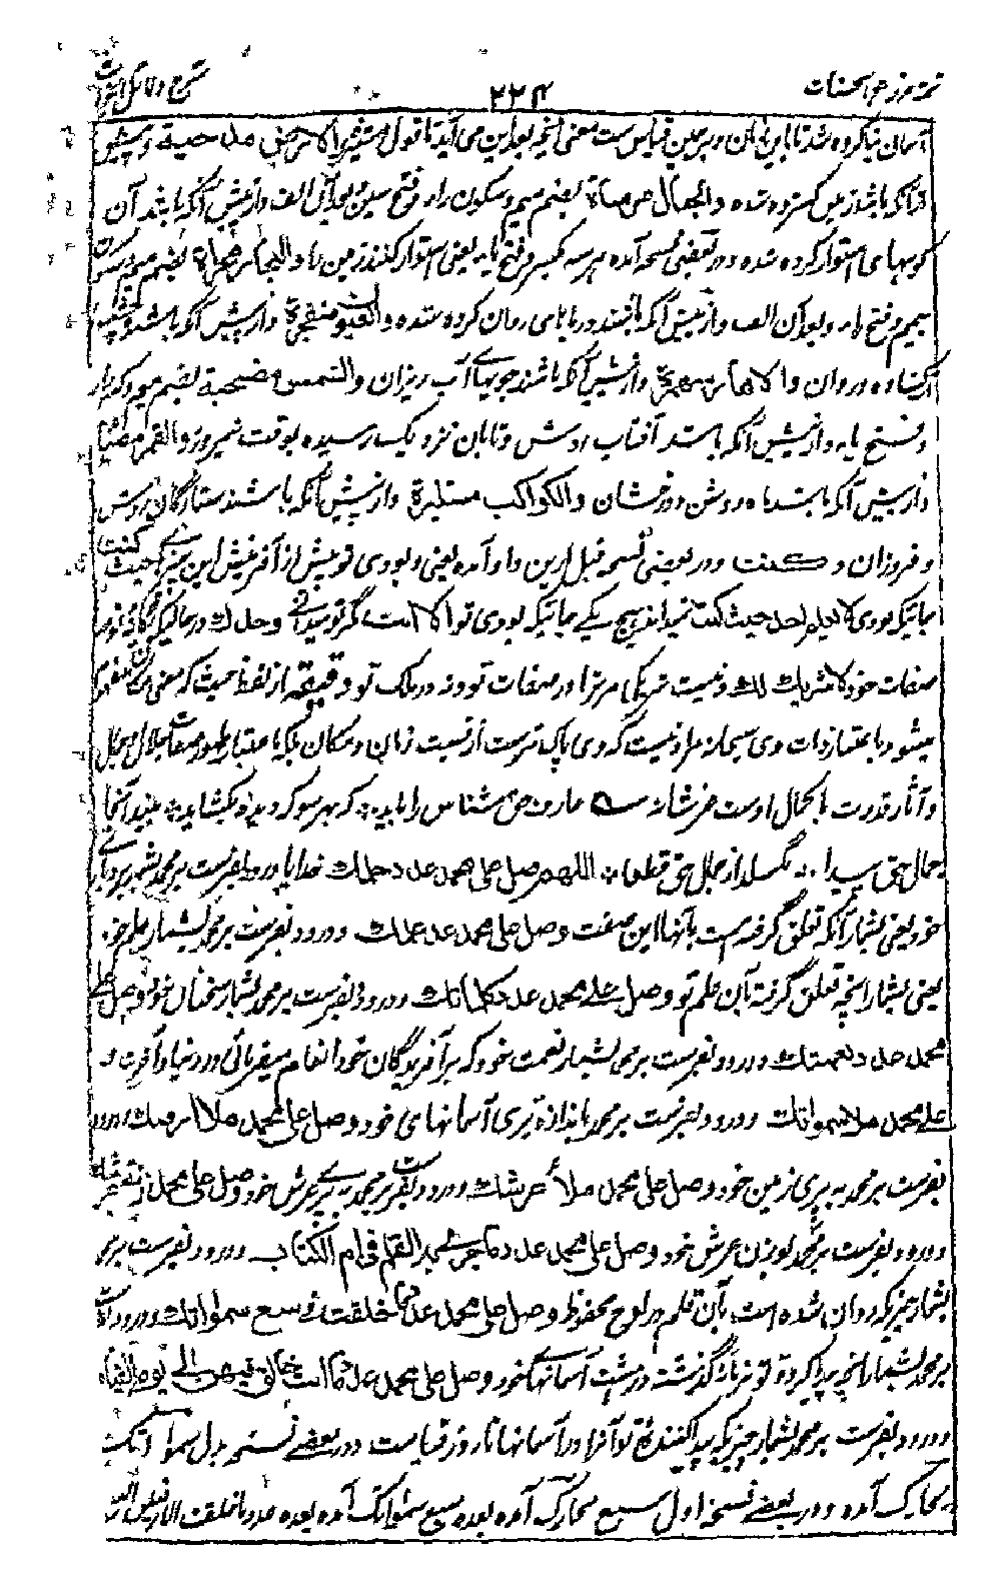 ترجمه مزرع الحسنات ۲۲۴ شرح دلائل الخیرات
آسمان بنا کرده شده تا این زمان و برهمین قیاس ست معنی آنچه بعد ازین می آید تا قول مستنیرة والارض مدحیة و پیش
آنکه باشد زمین گسترده شده والجبال مرساة بضم میم و سکون راء و فتح سین و بعد آن الف و از پیش آنکه باشند آن
کوههای استوار کرده شده و در بعضی نسخه آمده مرسیه بکسر و فتح یاء یعنی استوار کنندز زمین را والبحار مجراة بضم میم و سکون
جیم و فتح راء و بعد آن الف و از پیش آنکه باشند دریاهای روان کرده شده والعیون منفجرة و از پیش آنکه باشند چشمها
کشاده و روان والانهار منهمرة و از پیش آنکه باشند جویهای آب ریزان والشمس مضحیة بضم میم و کسر حاء
و فتح یاء و از پیش آنکه باشد آفتاب روشن و تابان نزدیک رسیده بوقت نیمروز والقمر مضیئا
و از پیش آنکه باشد ماه روشن و درخشان والکواکب مستنیرة و از پیش آنکه باشند ستارگان روشن
و فروزان و کنت و در بعضی نسخه قبل ازین واو آمده یعنی و بودی تو پیش از آفرینش این چیزها کنت حیث کنت
جائیکه بودی لا یعلم احد حیث کنت نمیداند هیچ یکی جائیکه بودی تو الا انت مگر تو میدانی وحدک در حالیکه یگانهٔ تو در
صفات خود لا شریک لک و نیست شریکی مر ترا در صفات تو و نه در ملک تو و دقیقه از لفظ حیث که معنی مکان مفهوم
میشود باعتبار ذات وی سبحانه مراد نیست که وی پاک تر است از نسبت زمان و مکان بلکه باعتبار ظهور صفات جلال و جمال
و آثار قدرت با کمال اوست عز شانه عارف حق شناس را باید که بهر سو که دیده بکشاید بیند آنجا
جمال حق پیدا نگسلد از جمال حق قطعا اللهم صل علی محمد عدد حلمک خدایا درود بفرست بر محمد بشمار بردباری
خود یعنی بشمار آنکه تعلق گرفته است بآنها این صفت وصل علی محمد عدد علمک و درود بفرست بر محمد بشمار علم خود
یعنی بشمار آنچه تعلق گرفته بآن علم تو وصل علی محمد عدد کلماتک و درود بفرست بر محمد بشمار سخنان خود وصل علی
محمد عدد نعمتک و درود بفرست بر محمد بشمار نعمت خود که بر آفریدگان خود انعام میفرمائی در دنیا و آخرت و
علی محمد ملأ سمواتک و درود بفرست بر محمد باندازه پری آسمانهای خود وصل علی محمد ملأ ارضک و درود
بفرست بر محمد به پری زمین خود وصل علی محمد ملأ عرشک و درود بفرست بر محمد به پری عرش خود وصل علی محمد زنة عرشک
و درود بفرست بر محمد بوزن عرش خود وصل علی محمد عدد ما جری به القلم فی ام الکتاب و درود بفرست بر محمد
بشمار چیزیکه روان شده است بآن قلم در لوح محفوظ وصل علی محمد عدد ما خلقت فی سبع سمواتک و درود بفرست
بر محمد بشمار آنچه پیدا کردهٔ تو بزمانه گذشته در هفت آسمانهای خود وصل علی محمد عدد ما انت خالق فیهن الی یوم القیامة
و درود بفرست بر محمد بشمار چیزیکه پیدا کنندهٔ تو آنرا در آسمانها تا روز قیامت و در بعضی نسخه بدل سمواتک
بحارک آمده و در بعضی نسخه اول سبع بحارک آمده بعده سبع سمواتک آمده بعده عدد ما خلقت